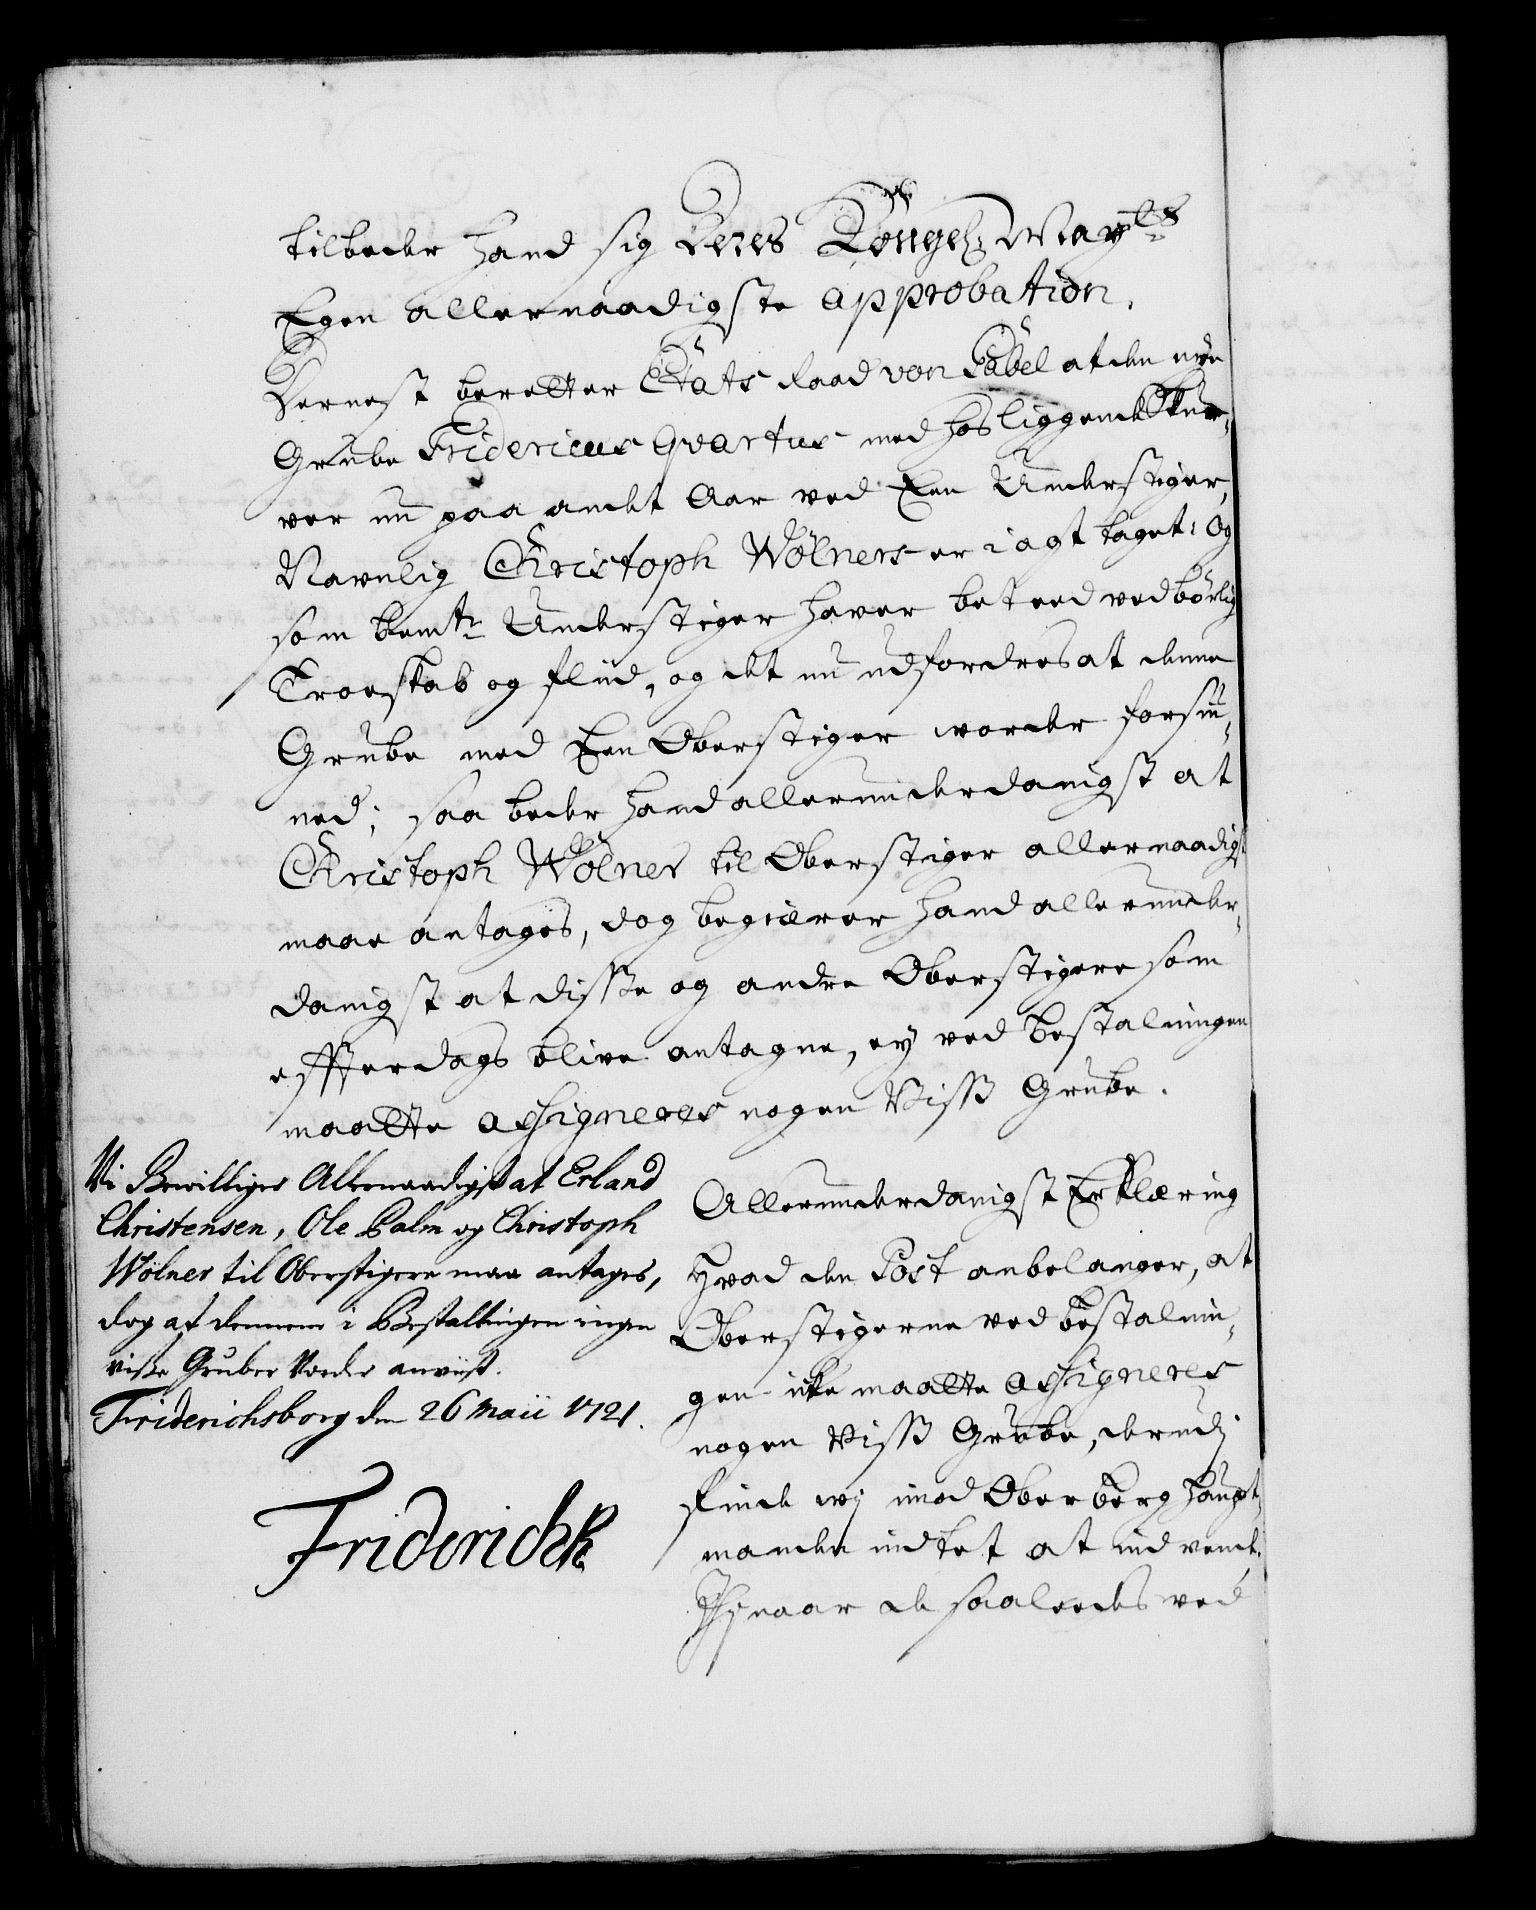 tilbeder hand sig Deres Kongel: Mayts
Egen allernaadigste approbation.
Dernest beretter Etats Raad von Pabel at den nye
Grube Fridericus Qvartus med hosliggende Skur-
ver nu paa andet Aar ved Een Understiger,
Navnlig Christoph Wölners er i agt taget: Og
som bemte Understiger haver beteed ved börlig
Troeskab og fliid, og det nu udfordres at denne
Grube med Een Oberstiger vorder forsiu-
ned; saa beder hand allerunderdanigst at
Christoph Wölner til Oberstiger allernaadigst
maae antages, dog begiærer hand allerunder-
danigst at disse og andre Oberstigere som
effterdags blive antagne, ey ved bestalningen
maatte assigneres nogen Viss Grube.
Vi Bewilliger Allernaadigst at Erland
Christensen, Ole Palm og Christoph
Wölner til Oberstigere maa antages,
dog at dennem i Bestallingen ingen
visse Gruber Vorder anviist.
Friderichsborg den 26 Maii 1721.
Friderich R
Allerunderdanigst Erklæring
Hvad den Post anbelanger, at
Oberstigerne ved bestalnin-
gen icke maatte assigneres
nogen Viss Grube, derudj
finde wj imod Oberberghaupt-
manden indtet at indvende.
Thj naar de saaleedes ved